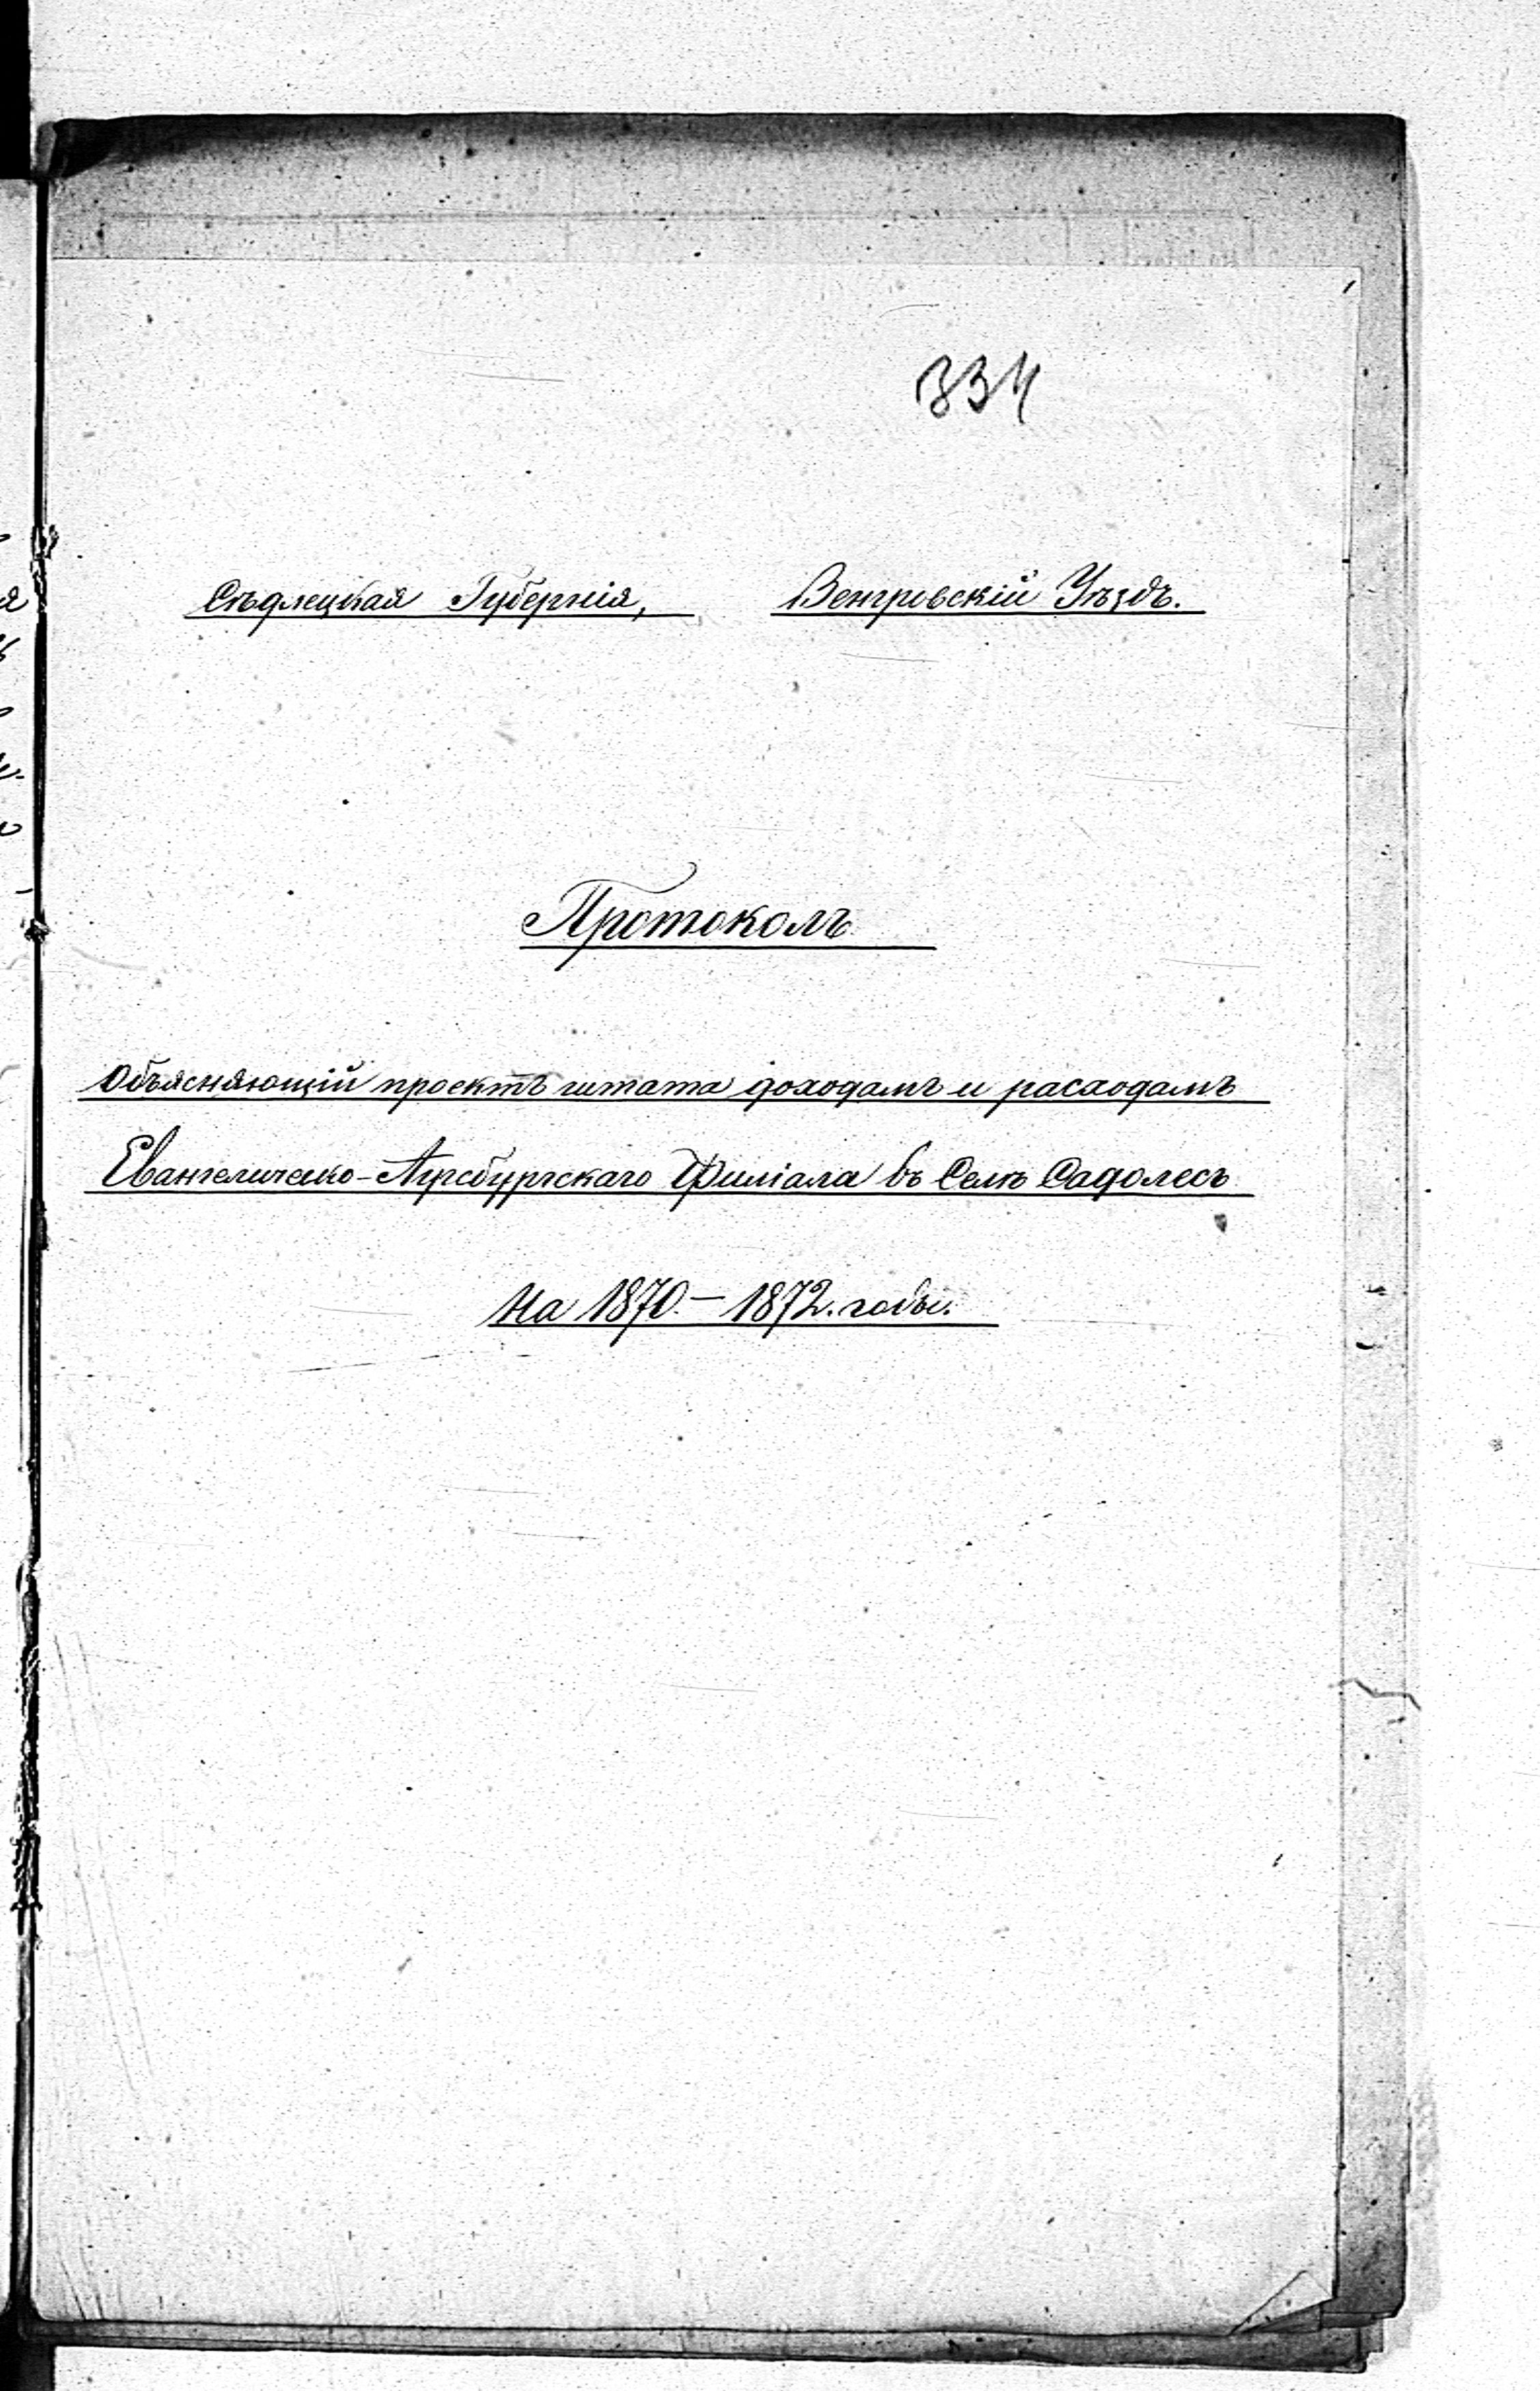 334
Сѣдлецкая Губернія, Венгровскій Уѣздъ.
Протоколъ
Объясняющій проектъ штата доходамъ и расходамъ
Евангеличено-Аугсбургскаго Филіала въ Селѣ Садолесь
На 1870.– 1872. годы.